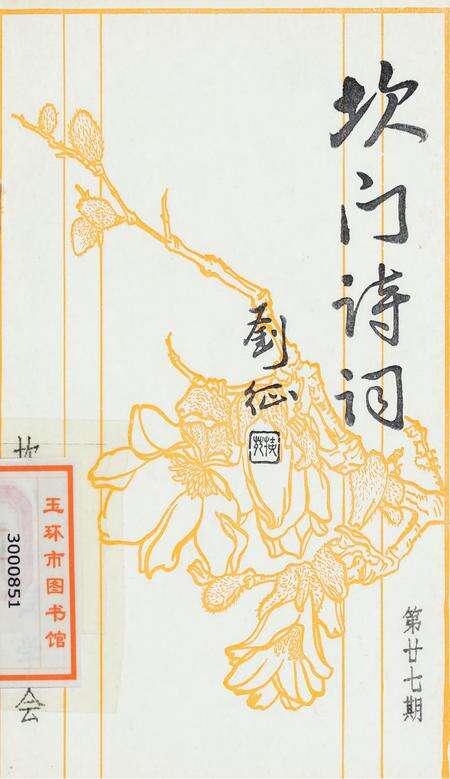 坎门诗词
劉征
第廿七期
玉环市图书馆
3000851
会